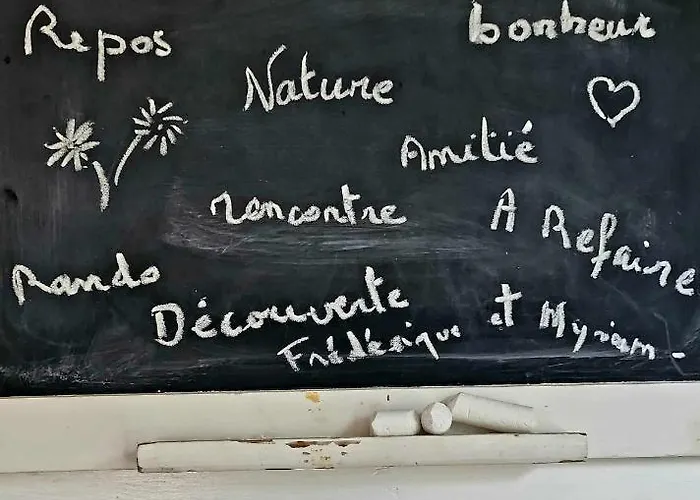 Repos
bonheur
Nature
Amitié
rencontre
A Refaire
Rando
Découverte
Frédérique et Myriam.